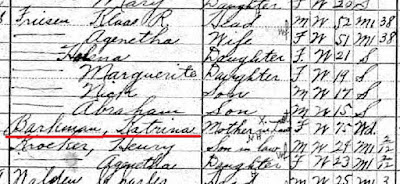 Mary Daughter F W 20 S
Friesen Klaas R. Head M W 52 M1 38
— Agenetha Wife F W 51 M1 38
— Helena Daughter F W 21 S
— Marguerite Daughter F W 19 S
— Nick Son M W 17 S
— Abraham Son M W 15 S
Barkman, Katrina Mother F W 75 Wd
Kroeker, Henry Son in law M W 24 M1
— Agnetha Daughter F W 23 M1
Charles Head M W